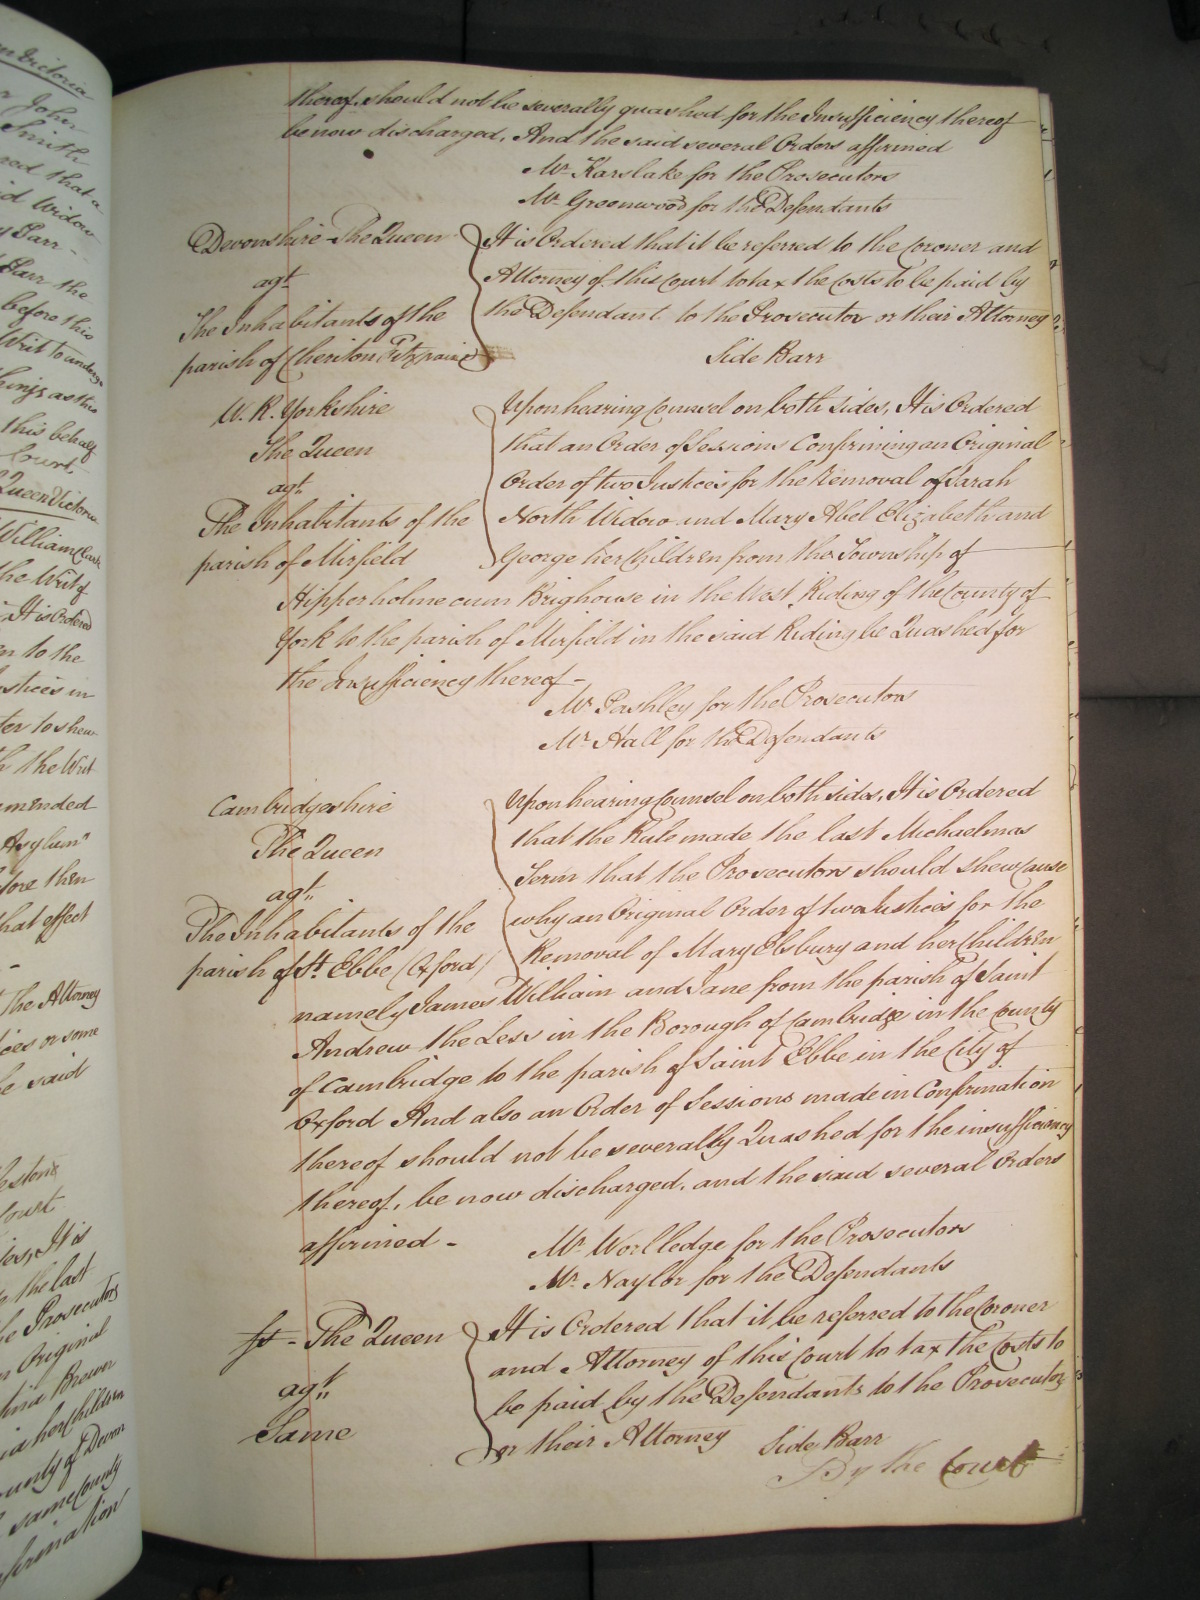 thereof should not be severally quashed for the Insufficiency thereof
be now discharged, And the said several Orders affirmed
Mr. Karslake for the Prosecutors
Mr. Greenwood for the Defendants
Devonshire The Queen
agt.
The Inhabitants of the
parish of Cheriton Fitzpaine
It is Ordered that it be referred to the Coroner and
Attorney of this Court to tax the Costs to be paid by
the Defendant to the Prosecutor or their Attorney
Side Barr
W. R. Yorkshire
The Queen
agt.
The Inhabitants of the
parish of Mirfield
Upon hearing Counsel on both sides, It is Ordered
that an Order of Sessions Confirming an Original
Order of two Justices for the Removal of Sarah
North Widow and Mary Abel Elizabeth and
George her Children from the Township of
Hipperholme cum Brighouse in the West Riding of the County of
York to the parish of Mirfield in the said Riding be Quashed for
the Insufficiency thereof -
Mr. Pashley for the Prosecutors
Mr. Hall for the Defendants
Cambridgeshire
The Queen
agt.
The Inhabitants of the
parish of St. Ebbe (Oxford)
Upon hearing Counsel on both sides, It is Ordered
that the Rule made the last Michaelmas
Term that the Prosecutors should shew cause
why an Original Order of two Justices for the
Removal of Mary Elsbury and her Children
namely James William and Jane from the parish of Saint
Andrew the Less in the Borough of Cambridge in the County
of Cambridge to the parish of Saint Ebbe in the City of
Oxford And also an Order of Sessions made in Confirmation
thereof should not be severally Quashed for the insufficiency
thereof, be now discharged, and the said several Orders
affirmed -
Mr. Worlledge for the Prosecutors
Mr. Naylor for the Defendants
The Queen
agt.
Same
It is Ordered that it be referred to the Coroner
and Attorney of this Court to tax the Costs to
be paid by the Defendants to the Prosecutors
or their Attorney Side Barr
By the Court